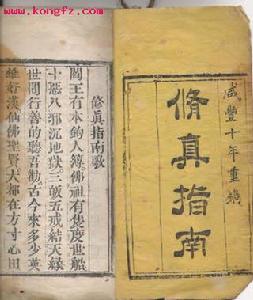 www.kongfz.com
咸豐十年重鐫
脩真指南
修真指南歌
閻王有本鉤人簿佛祖有隻度世船
十惡八邪沉地獄三皈五戒結天緣
世間行善的聽吾勸古今來多少英
雄好漢仙佛聖賢大都在方寸心田